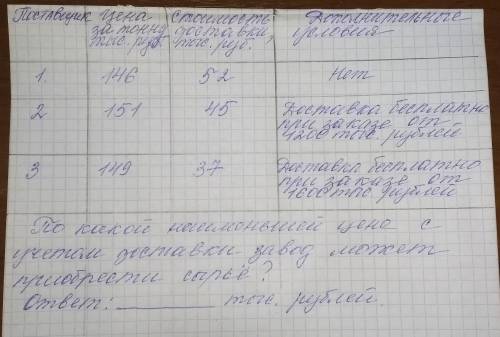 Поставщик Цена за тонну, тыс. руб. Стоимость доставки, тыс. руб. Дополнительные условия
1. 146 52 Нет
2 151 45 Доставка бесплатно
при заказе от
1200 тыс. рублей
3 149 37 Доставка бесплатно
при заказе от
1600 тыс. рублей
По какой наименьшей цене с
учетом доставки завод может
приобрести сырьё?
Ответ: ________ тыс. рублей.